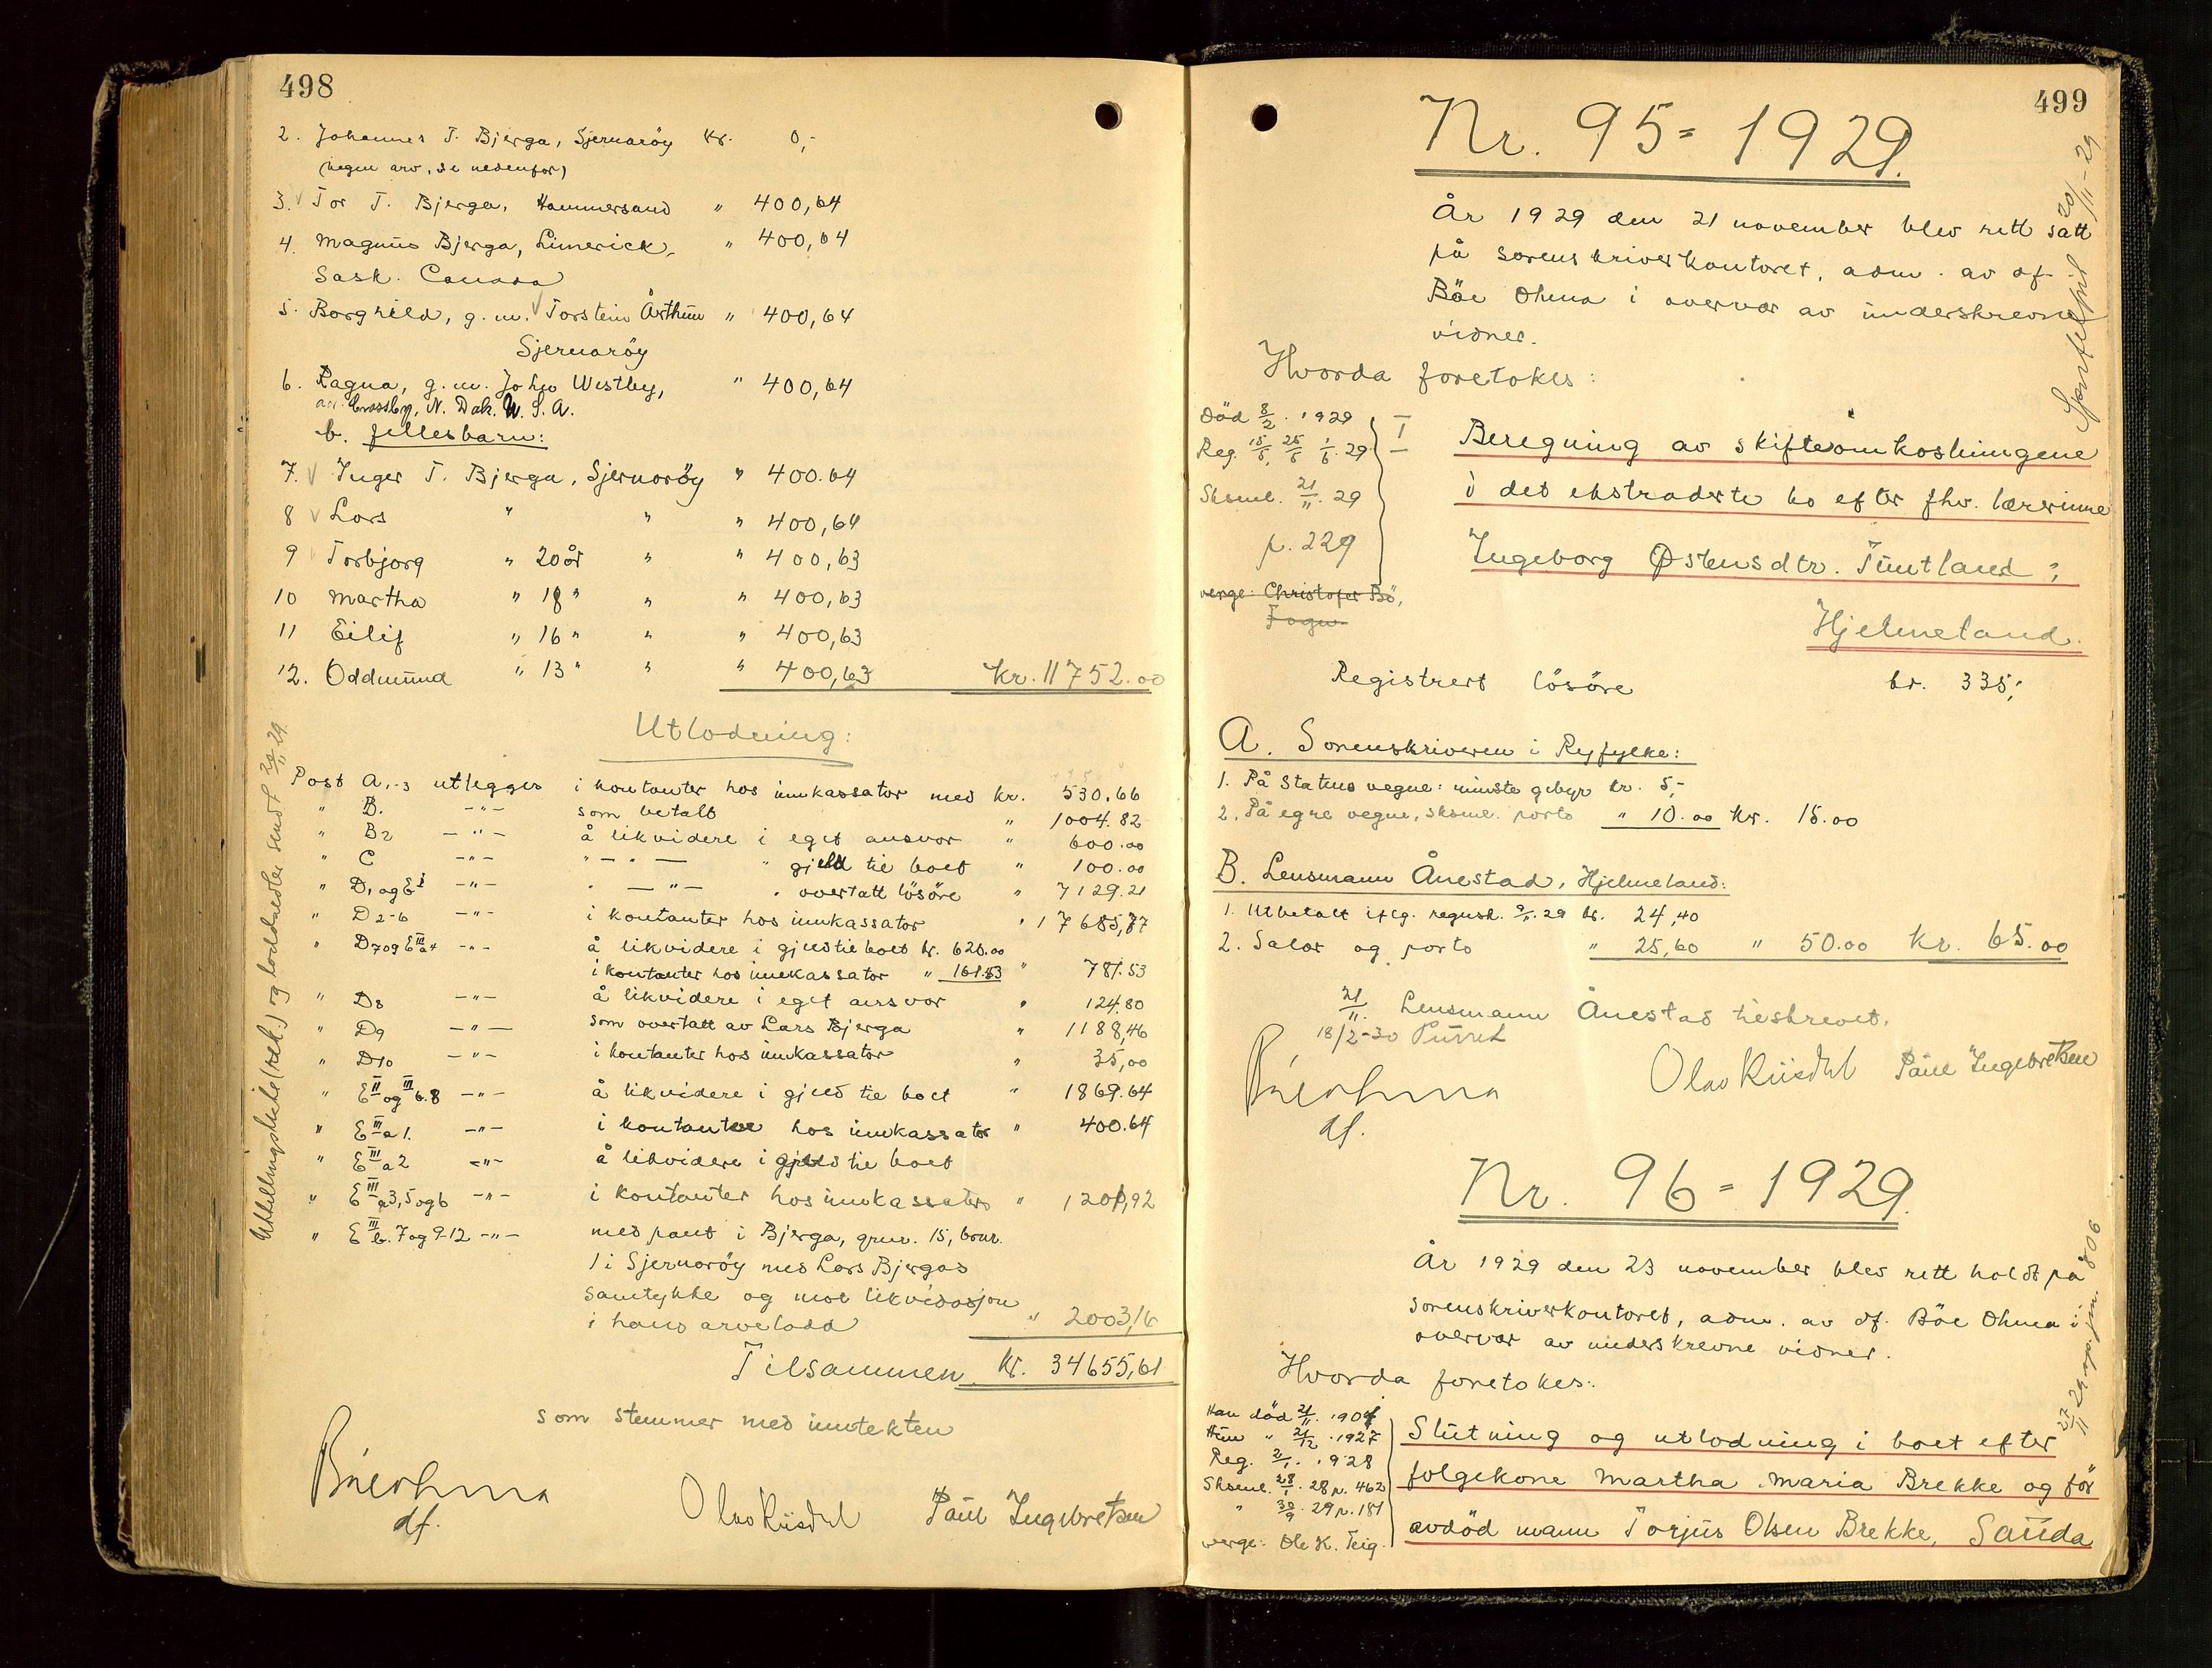 498
2. Johannes T. Bjerga, Sjernaröy kr. 0,-
(ingen arv, se nedenfor)
3. Tor T. Bjerga, Hammersand " 400,64
4. Magnus Bjerga, Limerick, " 400,64
Sask. Canada
5. Borghild, g. m. Torstein Årthun " 400,64
Sjernaröy
6. Ragna, g. m. John Westby, " 400,64
Crossby, N. Dak. U. S. A.
b. fellesbarn:
7. Inger T. Bjerga, Sjernaröy " 400.64
8 Lars " " " 400,64
9 Torbjorg " 20 år " " 400,63
10 Martha " 18 " " " 400,63
11 Eilif " 16 " " " 400,63
12. Oddmund " 13 " " " 400,63 kr. 11752.00
Utlodning:
Post A,-3 utlegges i kontanter hos innkassator med kr. 530.66
" B. -"- som betalt " 1004.82
" B2 -"- å likvidere i eget ansvar " 600.00
" C -"- " - " - " gjeld til boet " 100.00
" D1 og E I -"- " - " - " overtatt lösöre " 7129.21
" D2-6 -"- i kontanter hos innkassator " 17685,77
" D7 og E III a4 -"- å likvidere i gjeld til boet kr. 620.00
i kontanter hos innkassator " 161.53 " 781.53
" D8 -"- å likvidere i eget ansvar " 124.80
" D9 -"- som overtatt av Lars Bjerga " 1188,46
" D10 -"- i kontanter hos innkassator " 35,00
" E II og III b.8 -"- å likvidere i gjeld til boet " 1869.64
" E III a1. -"- i kontanter hos innkassator " 400.64
" E III a2 -"- å likvidere i gjeld til boet
" E III a3,5 og 6 -"- i kontanter hos innkassator " 1201,92
" E III b. 7 og 9-12 -"- med pant i Bjerga, gnr. 15, bnr.
1 i Sjernaröy med Lars Bjergas
samtykke og mot likvidasjon
i hans arvelodd " 2003,16
Tilsammen kr. 34655,61
som stemmer med inntekten
Utskrift (rek.) og loddsedler sendt 29/11 29.
Böe Ohma
df.
Olav Riisdal Paul Ingebretsen
499
Nr. 95 = 1929.
20/11-29
År 1929 den 21 november blev rett satt
på sorenskriverkontoret, adm. av df.
Böe Ohma i overvær av underskrevne
vidner.
Hvorda foretokes:
Död 8/2. 1929
Reg. 15/5, 25/5 1/6. 29
Sksml. 21/11. 29
p. 229
verge: Christofer Bö,
Fogn
I
Beregning av skifteomkostningene
i det ekstraderte bo efter fhv. lærerinne
Ingeborg Østensdtr. Tuntland ;
Hjelmeland.
Registrert lösöre kr. 335,-
A. Sorenskriveren i Ryfylke:
1. På Statens vegne: minste gebyr kr. 5,-
2. På egne vegne, sksml. porto " 10.00 kr. 15.00
B. Lensmann Ånestad, Hjelmeland:
1. Utbetalt iflg. regnsk. 9/11. 29 kr. 24,40
2. Salær og porto " 25,60 " 50.00 kr. 65.00
21/11. Lensmann Ånestad tilskrevet.
18/2-30 Purret
Böe Ohma
df.
Olav Riisdal Paul Ingebretsen
Nr. 96 = 1929.
År 1929 den 23 november blev rett holdt på
sorenskriverkontoret, adm. av df. Böe Ohma i
overvær av underskrevne vidner.
Hvorda foretokes:
Han död 21/11. 1904
Hun " 21/12. 1927
Reg. 2/1. 1928
Sksml. 28/1. 28 p. 462
" 30/9. 29 p. 181
verge: Ole K. Teig.
Slutning og utlodning i boet efter
folgekone Martha Maria Brekke og för
avdöd mann Torjus Olsen Brekke, Sauda
27/11 29 jnr. 806